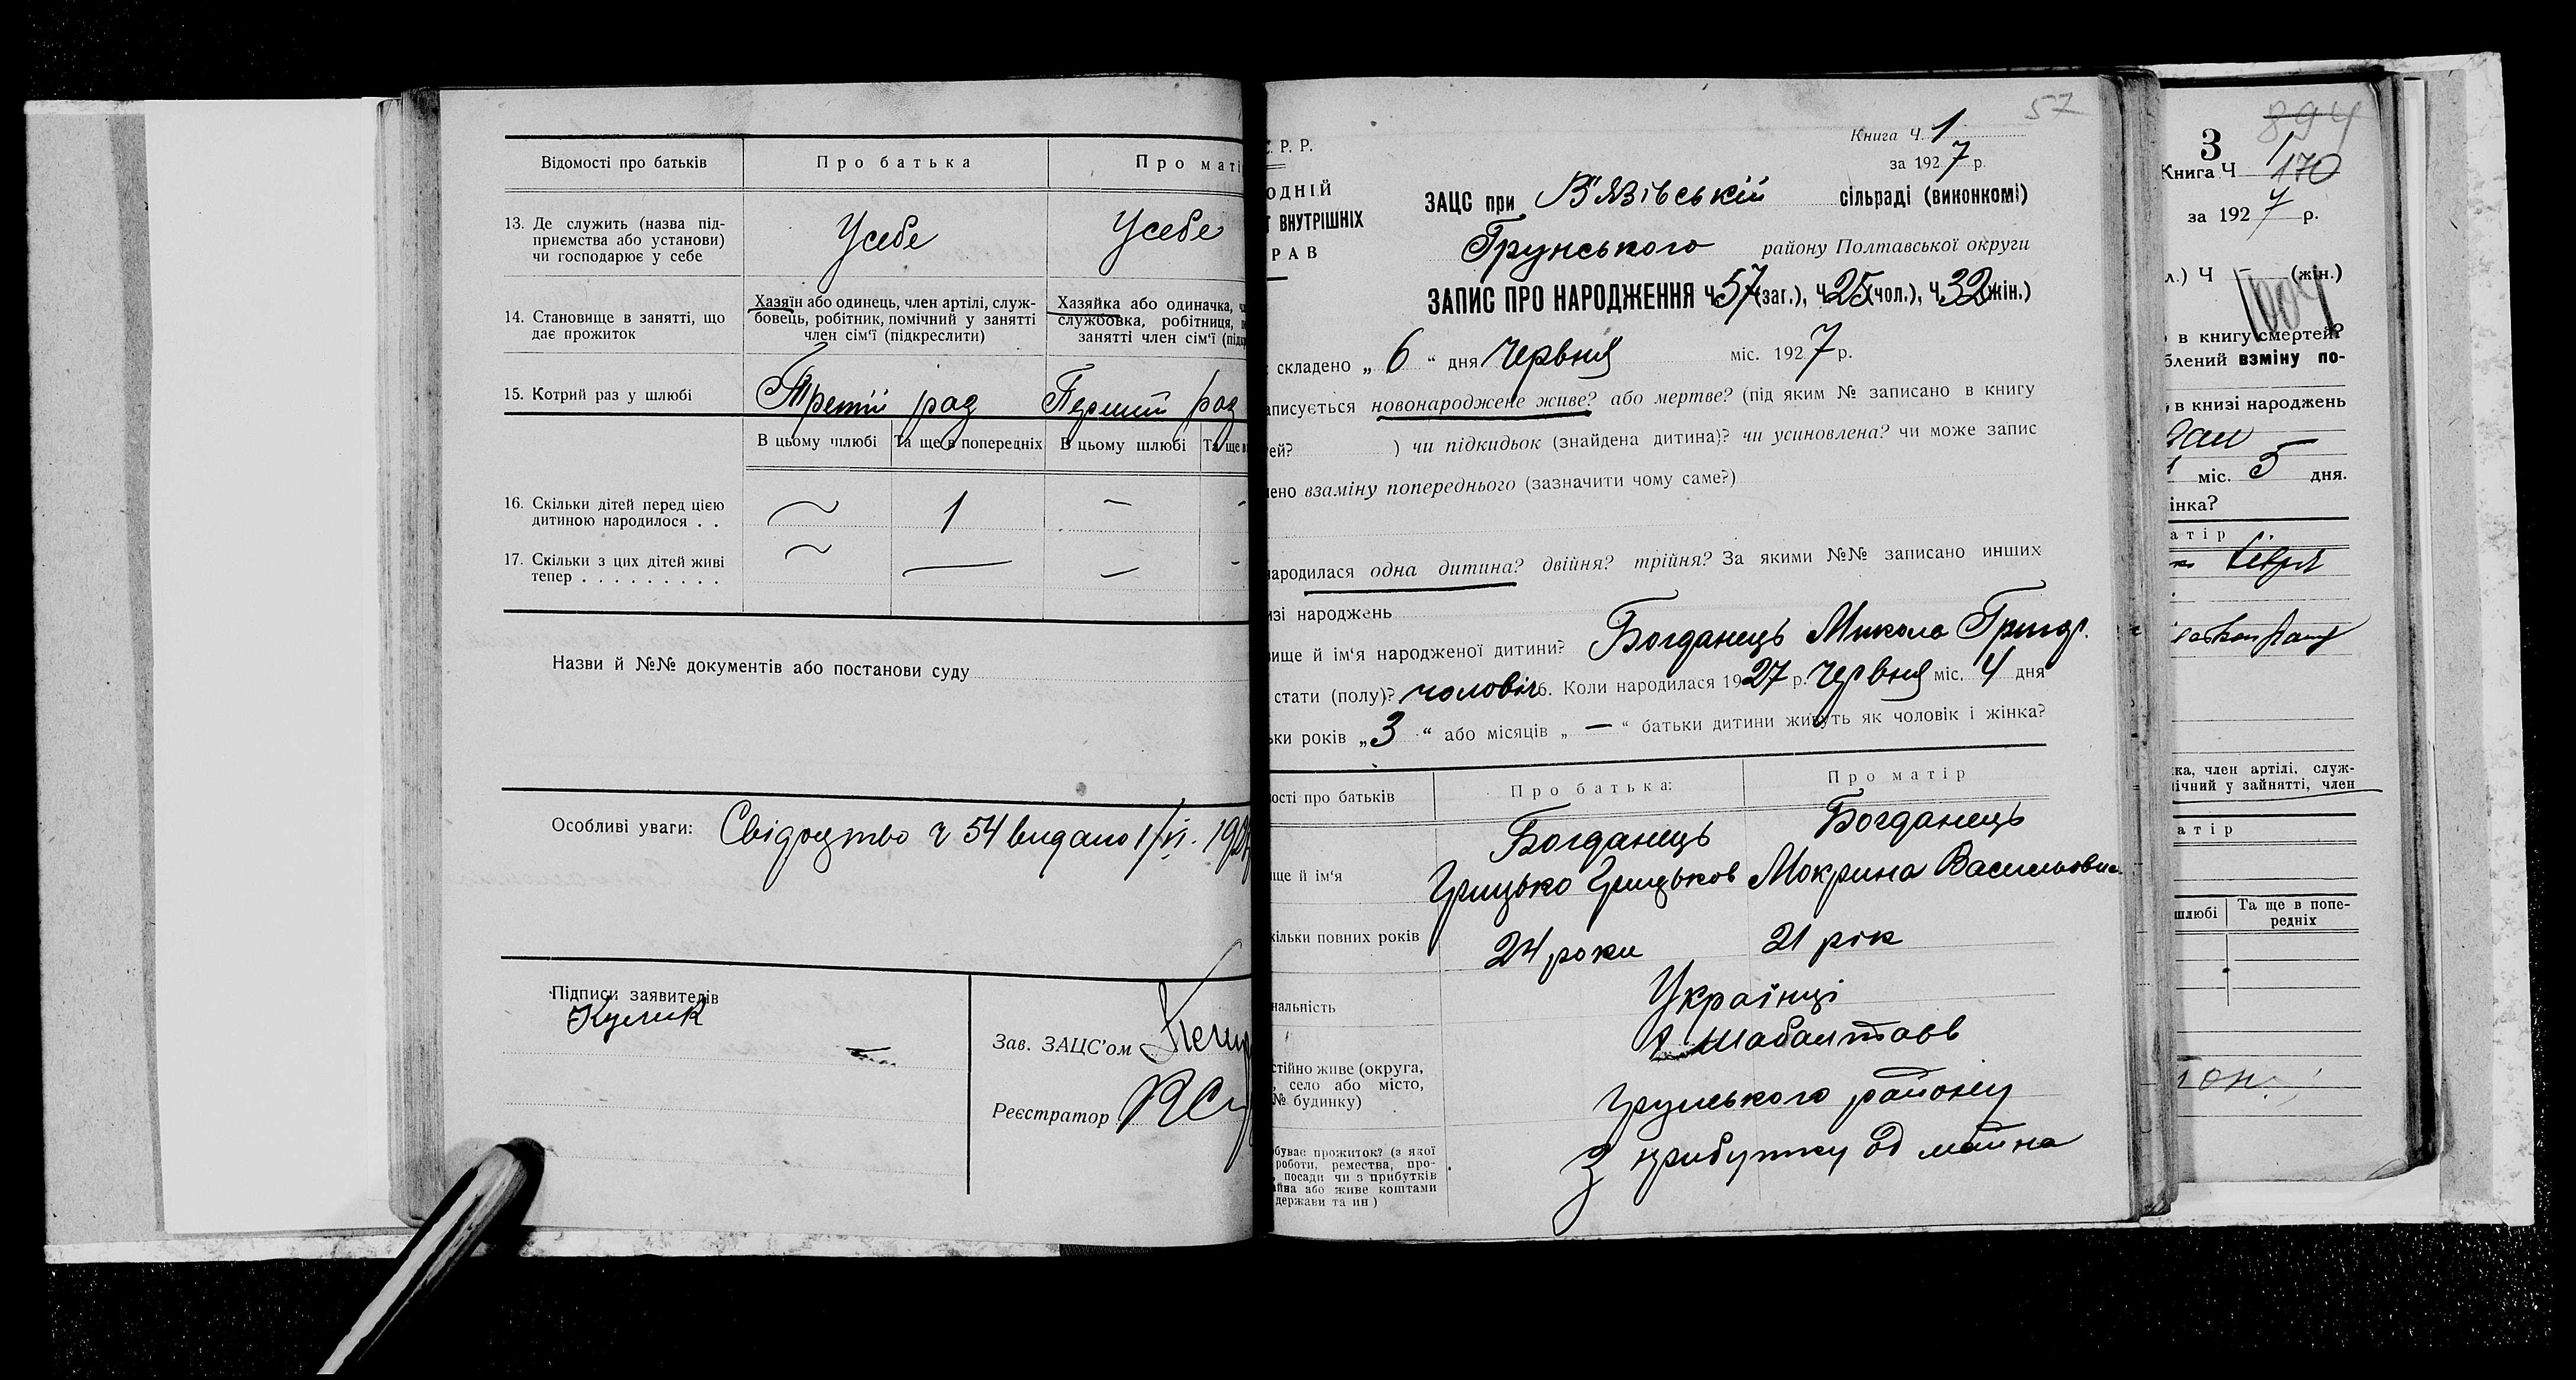 Відомості про батьків
Про батька
Про маті
13. Де служить (назва під-
приємства або установи)
чи господарює у себе
Усебе
Усебе
14. Становище в занятті, що
дає прожиток
Хазяїн або одинець, член артілі, служ-
бовець, робітник, помічний у занятті
член сім'ї (підкреслити)
Хазяйка або одиначка, ч
службовка, робітниця,
занятті член сім'ї (підк
15. Котрий раз у шлюбі
Третій раз
Перший раз
В цьому шлюбі
Та ще в попередніх
В цьому шлюбі
Та ще в
16. Скільки дітей перед цією
дитиною народилося . .
~ 1 – -
17. Скільки з цих дітей живі
тепер . . . . . . . . .
~ — – -
Назви й №№ документів або постанови суду
Особливі уваги: Свідоцтво ч 54 видано 1/VI. 192
Підписи заявителів
Кулик
Зав. ЗАЦС'ом
Реєстратор
57
. Р. Р.
ОДНІЙ
Т ВНУТРІШНІХ
РАВ
Книга Ч. 1
за 1927 р.
ЗАЦС при В'язівській сільраді (виконкомі)
Грунського району Полтавської округи
ЗАПИС ПРО НАРОДЖЕННЯ Ч 57 (заг.), Ч 25 (чол.), Ч 32 жін.)
складено „ 6 “ дня червня міс. 1927 р.
аписується новонароджене живе? або мертве? (під яким № записано в книгу
тей? ) чи підкидьок (знайдена дитина)? чи усиновлена? чи може запис
лено взаміну попереднього (зазначити чому саме?)
народилася одна дитина? двійня? трійня? За якими №№ записано инших
изі народжень
вище й ім'я народженої дитини? Богданець Микола Григор.
стати (полу)? чоловіч 6. Коли народилася 1927 р. червня міс. 4 дня
ьки років „ 3 “ або місяців „ — “ батьки дитини живуть як чоловік і жінка?
ості про батьків
Про батька:
Про матір
ще й ім'я
Богданець
Грицько Грицьков
Богданець
Мокрина Васильовна
кільки повних років
24 роки
21 рік
нальність
Українці
стійно живе (округа,
, село або місто,
№ будинку)
Шабалтаєв
Грунського району
буває прожиток? (з якої
роботи, ремества, про-
посади чи з прибутків
айна або живе коштами
держави та ин )
З прибутку од майна
894
3
1
Книга Ч 170
за 1927 р.
л.) Ч – (жін.)
в книгу смертей?
блений взміну по-
, в книзі народжень
міс. 5 дня.
інка?
атір
ка, член артілі, служ-
ічний у зайнятті, член
атір
шлюбі
Та ще в попе-
редніх